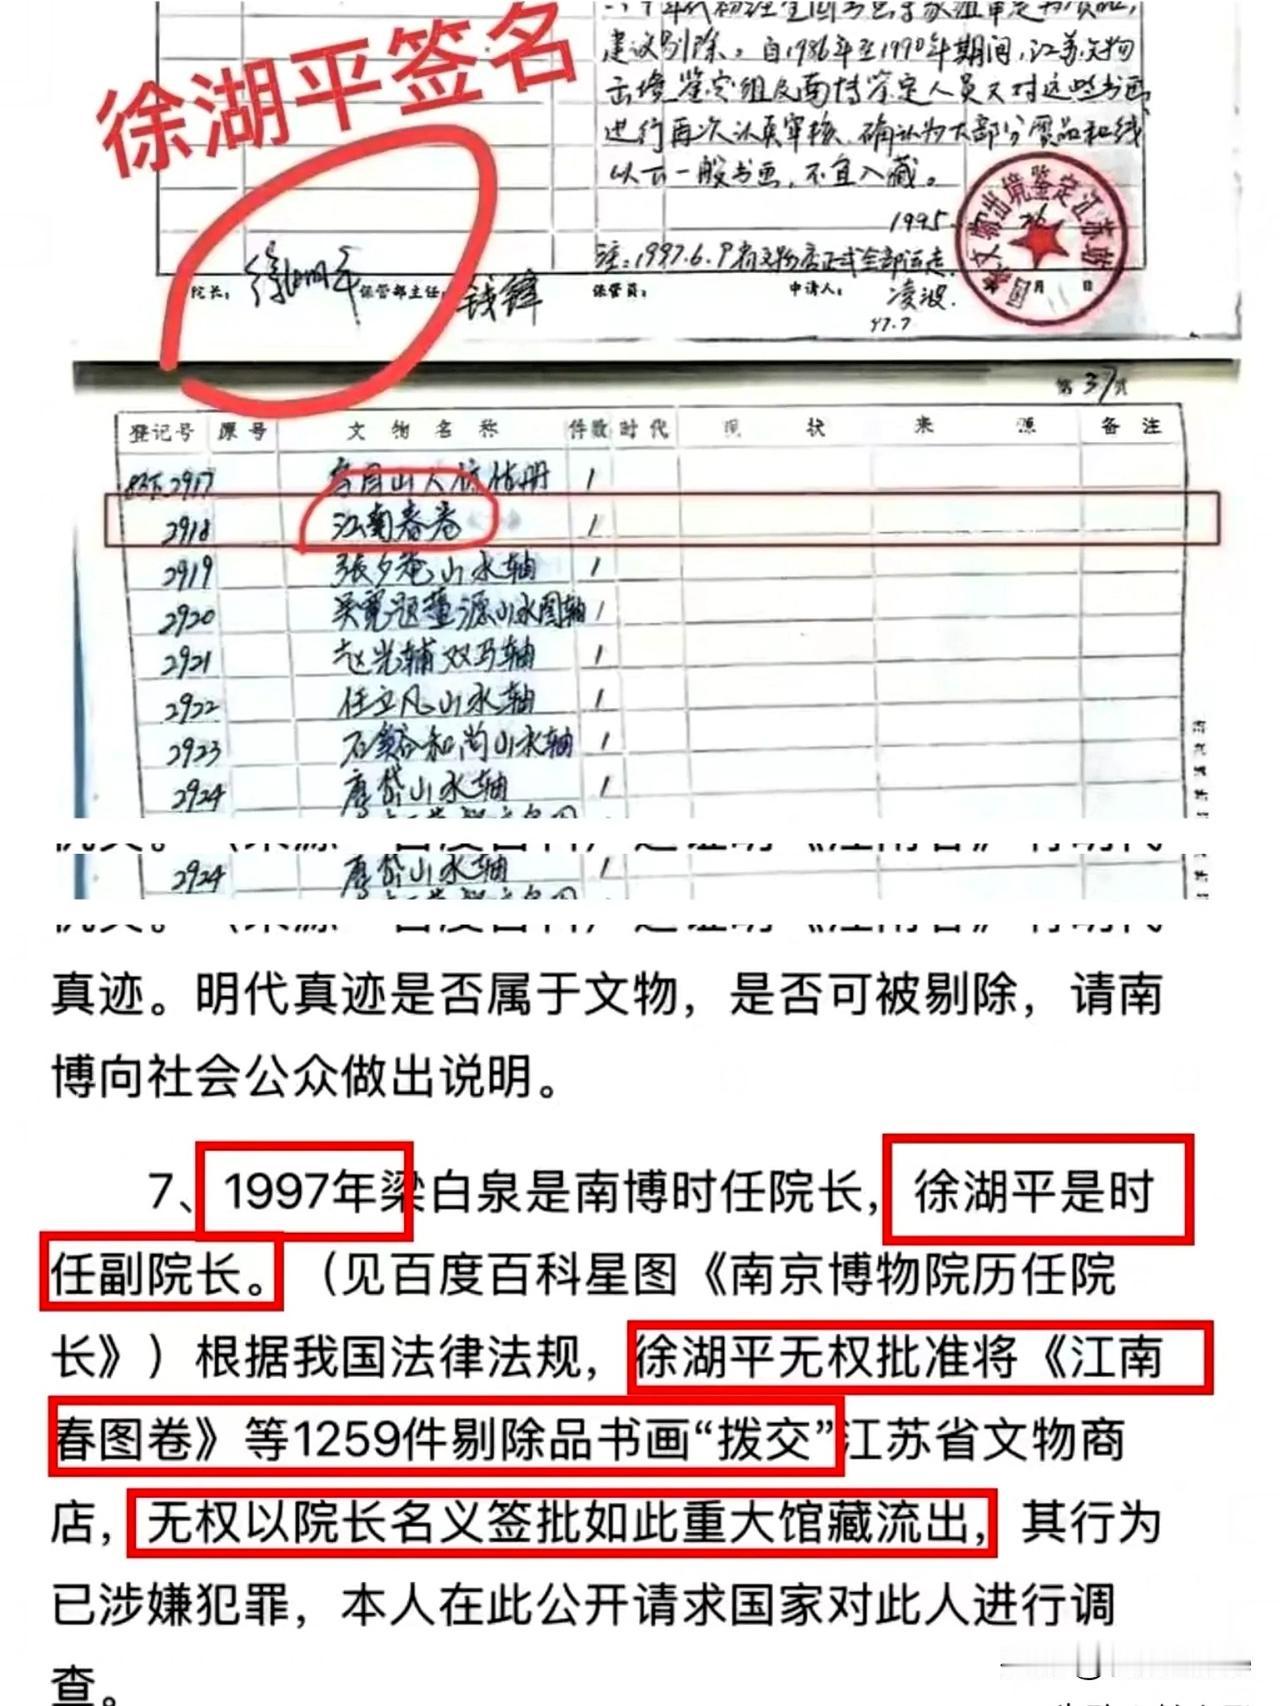 徐湖平签名
建议剔除。自1986年至1990年期间,江苏文物
出境鉴定组及南博鉴定人员又对这些书画
进行再次认真审核,确认为大部分赝品和线
以下一般书画,不宜入藏。
1995.
注:1997.6.9
国家文物出境鉴定江苏站
月 日
院长: 徐湖平 保管部主任: 钱锋 保管员: 申请人: 凌波.
97.7
第37页
登记号 原号 文物名称 件数 时代 现状 来源 备注
2917 1
2918 江南春卷 1
2919 張夕菴山水轴 1
2920 吴寛题董源山水图轴 1
2921 赵光辅双马轴 1
2922 任立凡山水轴 1
2923 和尚山水轴 1
2924 山水轴 1
2924 山水轴 1
真迹。明代真迹是否属于文物，是否可被剔除，请南
博向社会公众做出说明。
7、1997年梁白泉是南博时任院长，徐湖平是时
任副院长。（见百度百科星图《南京博物院历任院
长》）根据我国法律法规，徐湖平无权批准将《江南
春图卷》等1259件剔除品书画“拨交”江苏省文物商
店，无权以院长名义签批如此重大馆藏流出，其行为
已涉嫌犯罪，本人在此公开请求国家对此人进行调
查。